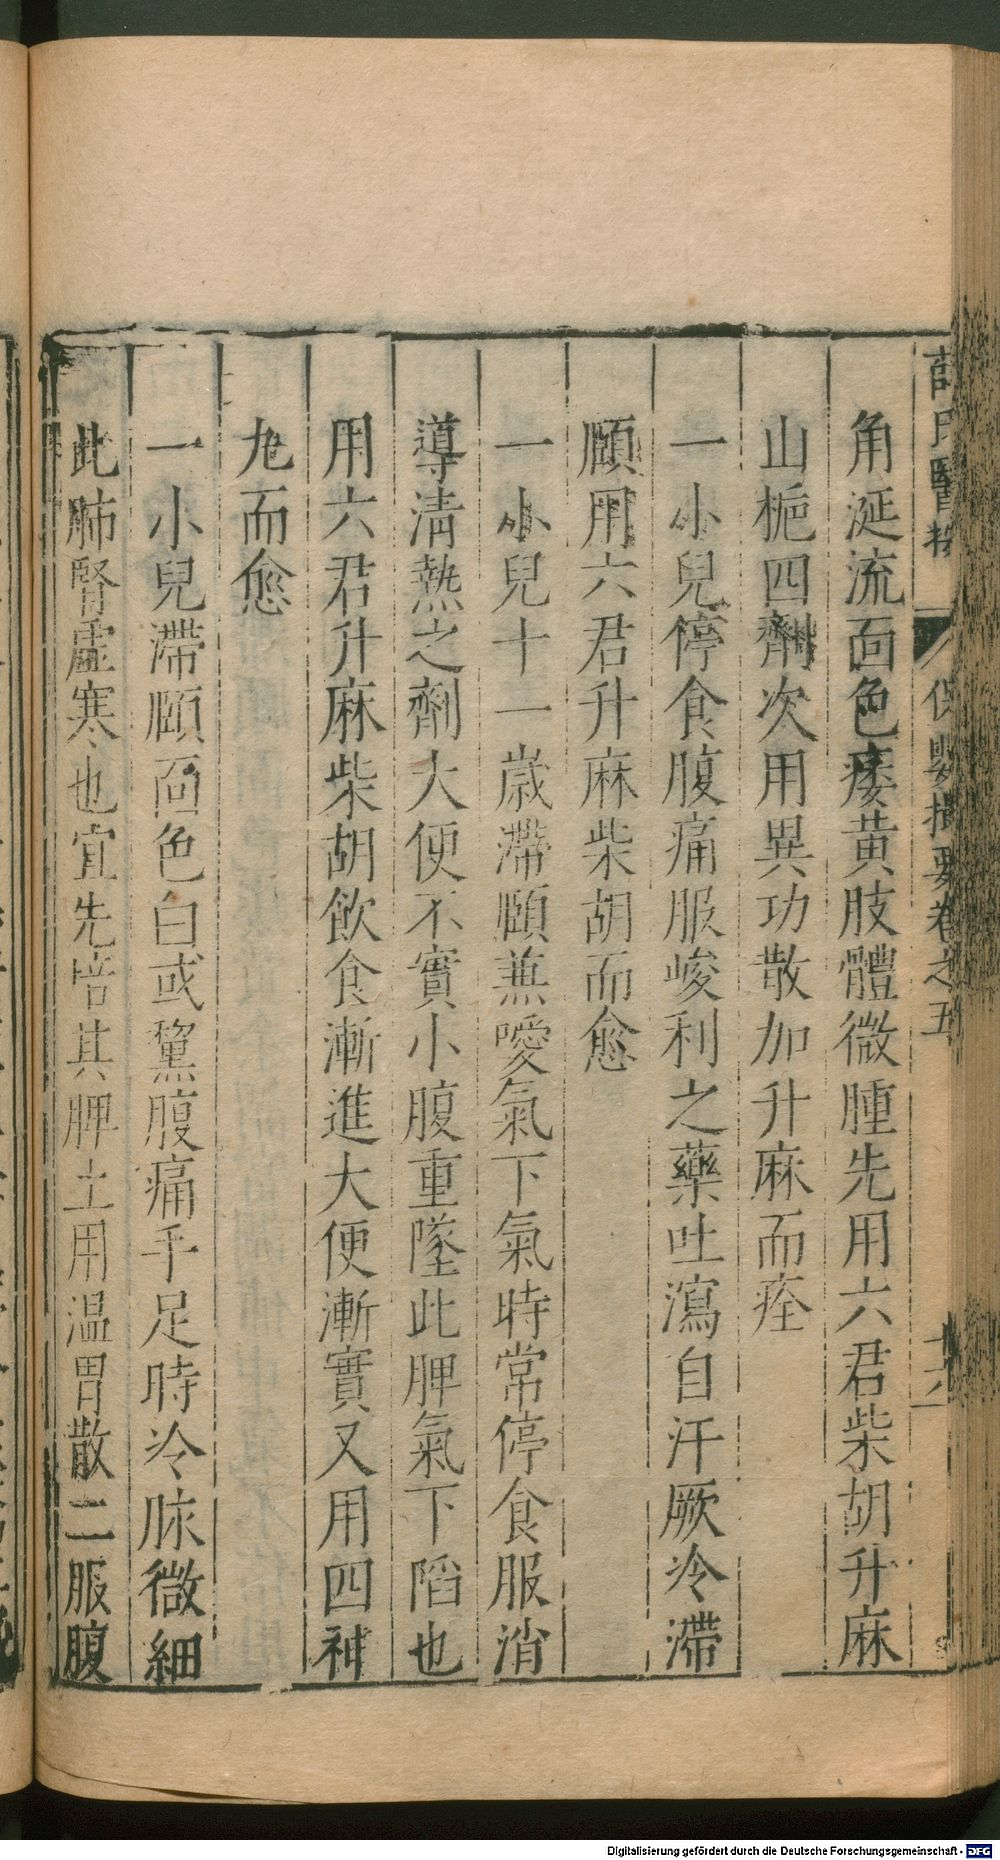 薛氏醫按 保嬰撮要卷之五 十六
角涎流面色痿黃肢體微腫先用六君柴胡升麻
山梔四劑次用異功散加升麻而痊
一小兒停食腹痛服峻利之藥吐瀉自汗厥冷滯
頤用六君升麻柴胡而愈
一小兒十一歲滯頤兼噯氣下氣時常停食服消
導清熱之劑大便不實小腹重墜此脾氣下陷也
用六君升麻柴胡飲食漸進大便漸實又用四神
九而愈
一小兒滯頤面色白或黧腹痛手足時冷脉微細
此肺腎虛寒也宜先培其脾土用温胃散二服腹
Digitalisierung gefördert durch die Deutsche Forschungsgemeinschaft - DFG